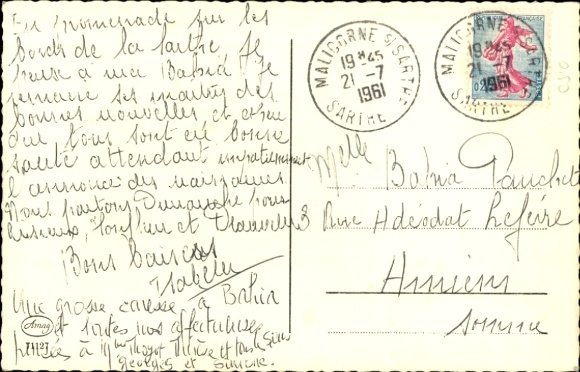 En promenade sur les
bords de la Sarthe je
pense à ma Bahia. Je
bonnes nouvelles et
que tous sont en bonne
santé attendant impatiemment
l'annonce des naissances
Nous partons Dimanche pour
Lisieux, Honfleur et Trouville
Bons Baisers
Isabelle
Une grosse caresse à Bahia
et toutes nos affectueuses
pensées à
Georges et Simone.
Amag
MALICORNE S/SARTHE
19 H 45
21 -7
1961
SARTHE
MALICORNE S/SARTHE
19 H 45
21 -7
1961
SARTHE
Melle Bahia Pauchet
3 Rue Adéodat Lefèvre
Amiens
Somme